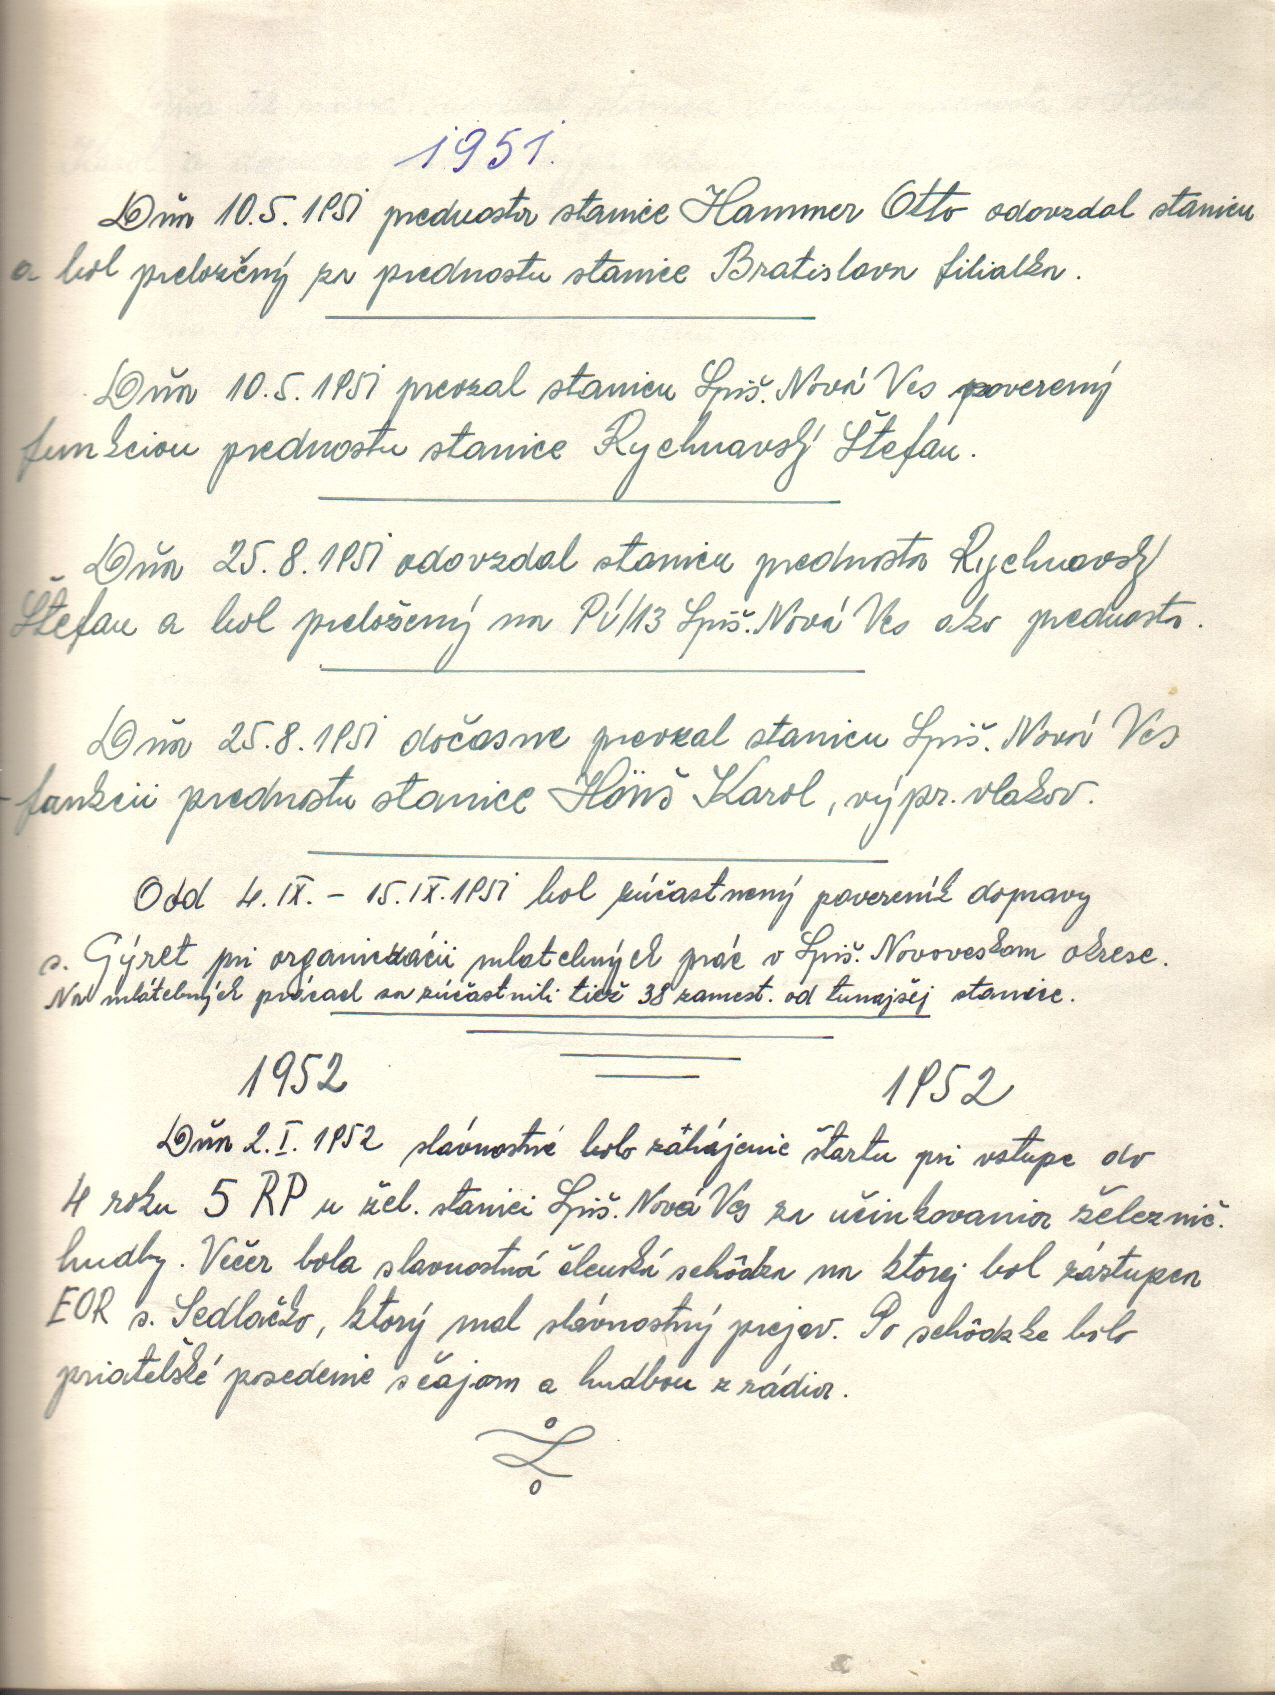 1951.
Dňa 10.5.1951 prednosta stanice Hammer Otto odovzdal stanicu
a bol preložený za prednostu stanice Bratislava filialka.
Dňa 10.5.1951 prevzal stanicu Spiš. Nová Ves poverený
funkciou prednostu stanice Rychnavský Štefan.
Dňa 25.8.1951 odovzdal stanicu prednosta Rychnavský
Štefan a bol preložený na PÚ/13 Spiš. Nová Ves ako prednosta.
Dňa 25.8.1951 dočasne prevzal stanicu Spiš. Nová Ves
funkcii prednostu stanice Hönš Karol, výpr. vlakov.
Odd 4.IX. - 15.IX.1951 bol zúčastnený povereník dopravy
s. Gýret pri organizácii mlatebných prác v Spiš. Novoveskom okrese.
Na mlátebných prácach sa zúčastnili tiež 38 zamest. od tunajšej stanice.
1952 1952
Dňa 2.I.1952 slávnostné bolo záhájenie štartu pri vstupe do
4 roku 5 RP u žel. stanici Spiš. Nová Ves za učinkovania železnič.
hudby. Večer bola slavnostná členská schôdza na ktorej bol zástupca
EOR s. Sedlačko, ktorý mal slávnostný prejav. Po schôdzke bolo
priatelské posedenie s čajom a hudbou z rádia.